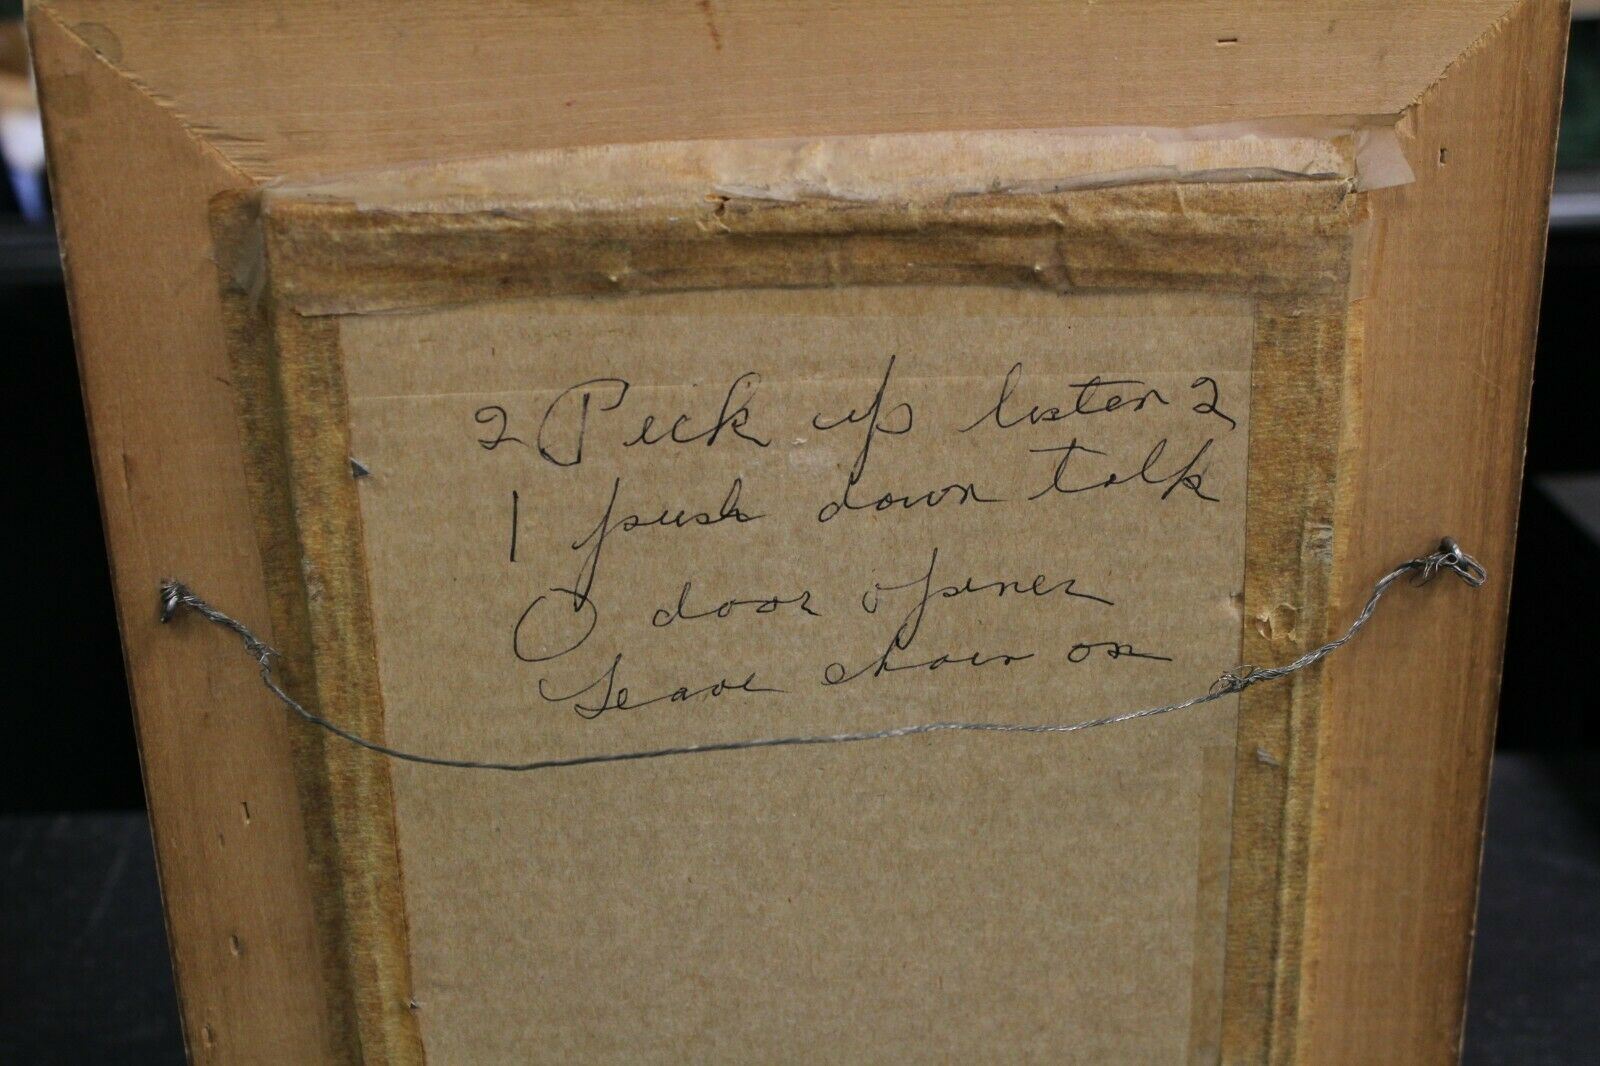 2 Pick up listen 2
1 push down talk
0 door opener
Leave chain on